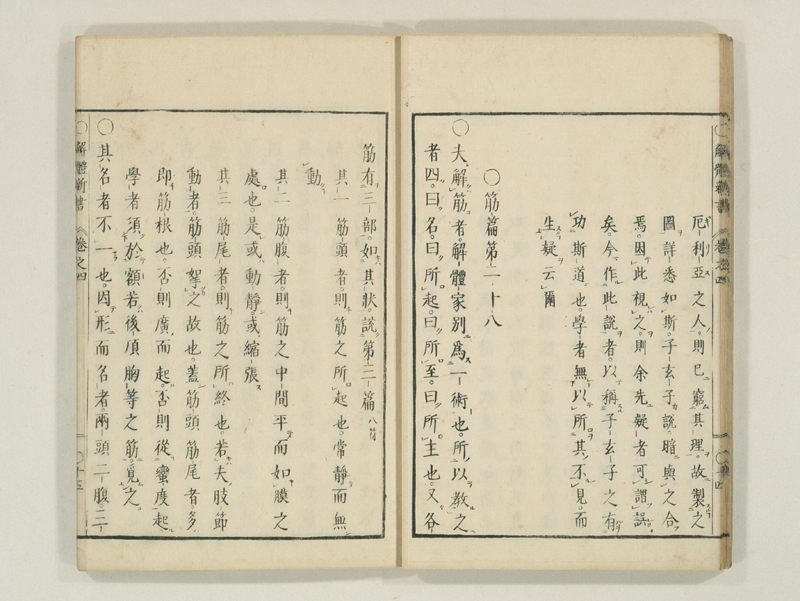 厄利亞之人。則已窮其理。故製之
圖詳悉如斯。子玄子説。暗與之合
焉。因此視之。則余先疑者可謂誤
矣。今作此説者。以稱子玄子之有
功斯道也。學者無以所其不見。而
生疑云爾
〇筋篇第二十八
〇夫解筋者。解體家別爲一術也。所以教之
者四。曰名。曰所起。曰所至。曰所主也。又各
筋有三部。如其狀。説第三篇八符
其一筋頭者。則筋之所起也。常靜而無
動
其二筋腹者。則筋之中間平而如膜之
處也。是或動靜。或縮張
其三筋尾者。則筋之所終也。若夫肢節
動者。筋頭挐之故也。蓋筋頭筋尾者。多
即筋根也。否則廣而起。否則從蠻度起
學者須於額若後項胸等之筋。覓之
〇其名者不一也。因形而名者。兩頭二腹三
〇解體新書
卷之四
〇十五